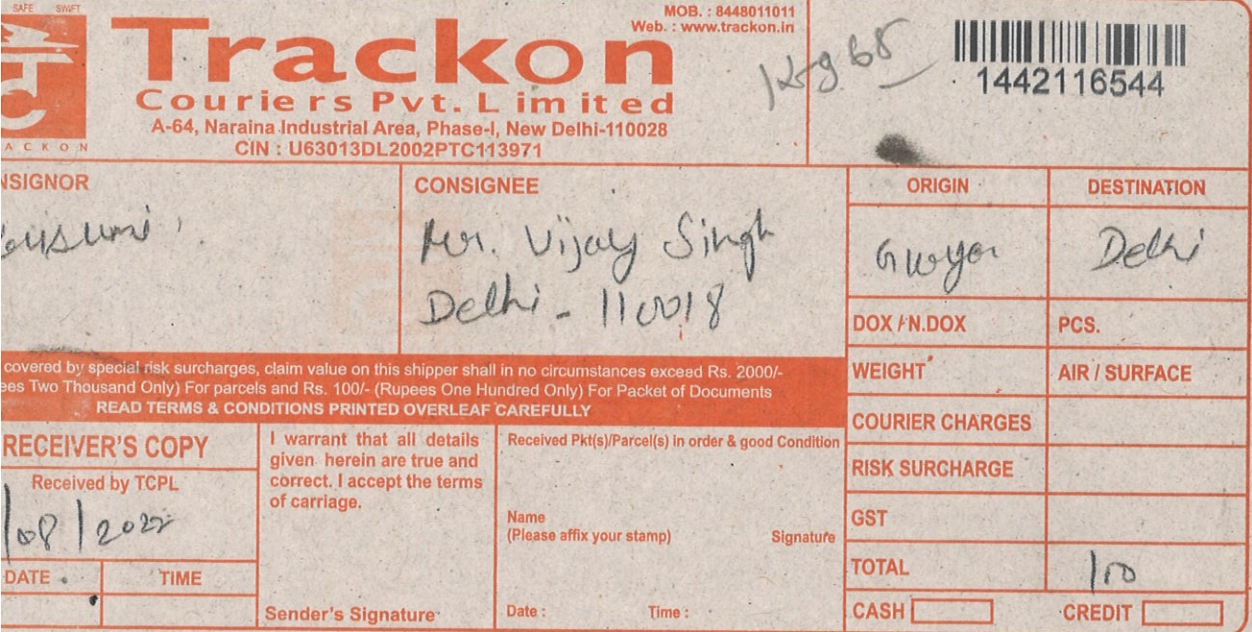 SAFE SWIFT
MOB. : 8448011011
Web. : www.trackon.in
Trackon
Couriers Pvt. Limited
A-64, Naraina Industrial Area, Phase-I, New Delhi-110028
CIN : U63013DL2002PTC113971
ACKON
1442116544
NSIGNOR
CONSIGNEE
Mr. Vijay Singh
Delhi - 110018
ORIGIN
DESTINATION
Delhi
DOX / N.DOX
PCS.
WEIGHT
AIR / SURFACE
COURIER CHARGES
RISK SURCHARGE
GST
TOTAL
100
CASH
CREDIT
covered by special risk surcharges, claim value on this shipper shall in no circumstances exceed Rs. 2000/-
ees Two Thousand Only) For parcels and Rs. 100/- (Rupees One Hundred Only) For Packet of Documents
READ TERMS & CONDITIONS PRINTED OVERLEAF CAREFULLY
RECEIVER'S COPY
Received by TCPL
/08/2022
DATE
TIME
I warrant that all details
given herein are true and
correct. I accept the terms
of carriage.
Sender's Signature
Received Pkt(s)/Parcel(s) in order & good Condition
Name
(Please affix your stamp)
Signature
Date :
Time :